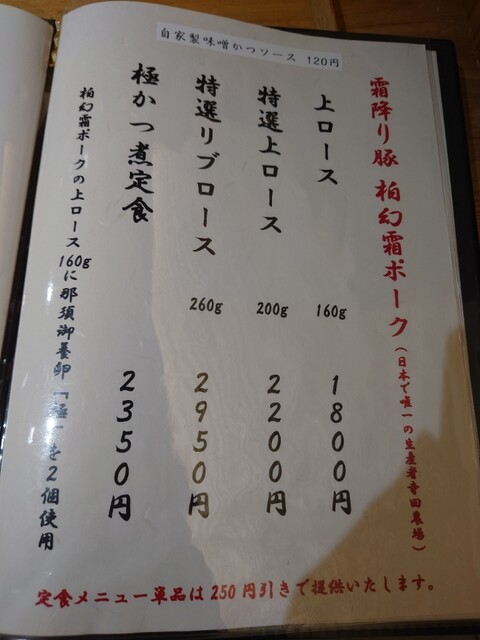 自家製味噌かつソース 120円
霜降り豚 柏幻霜ポーク(日本で唯一の生産者寺田農場)
上ロース 160g 1800円
特選上ロース 200g 2200円
特選リブロース 260g 2950円
極かつ煮定食 2350円
柏幻霜ポークの上ロース160gに那須御養卵「極」を2個使用
定食メニュー単品は250円引きで提供いたします。